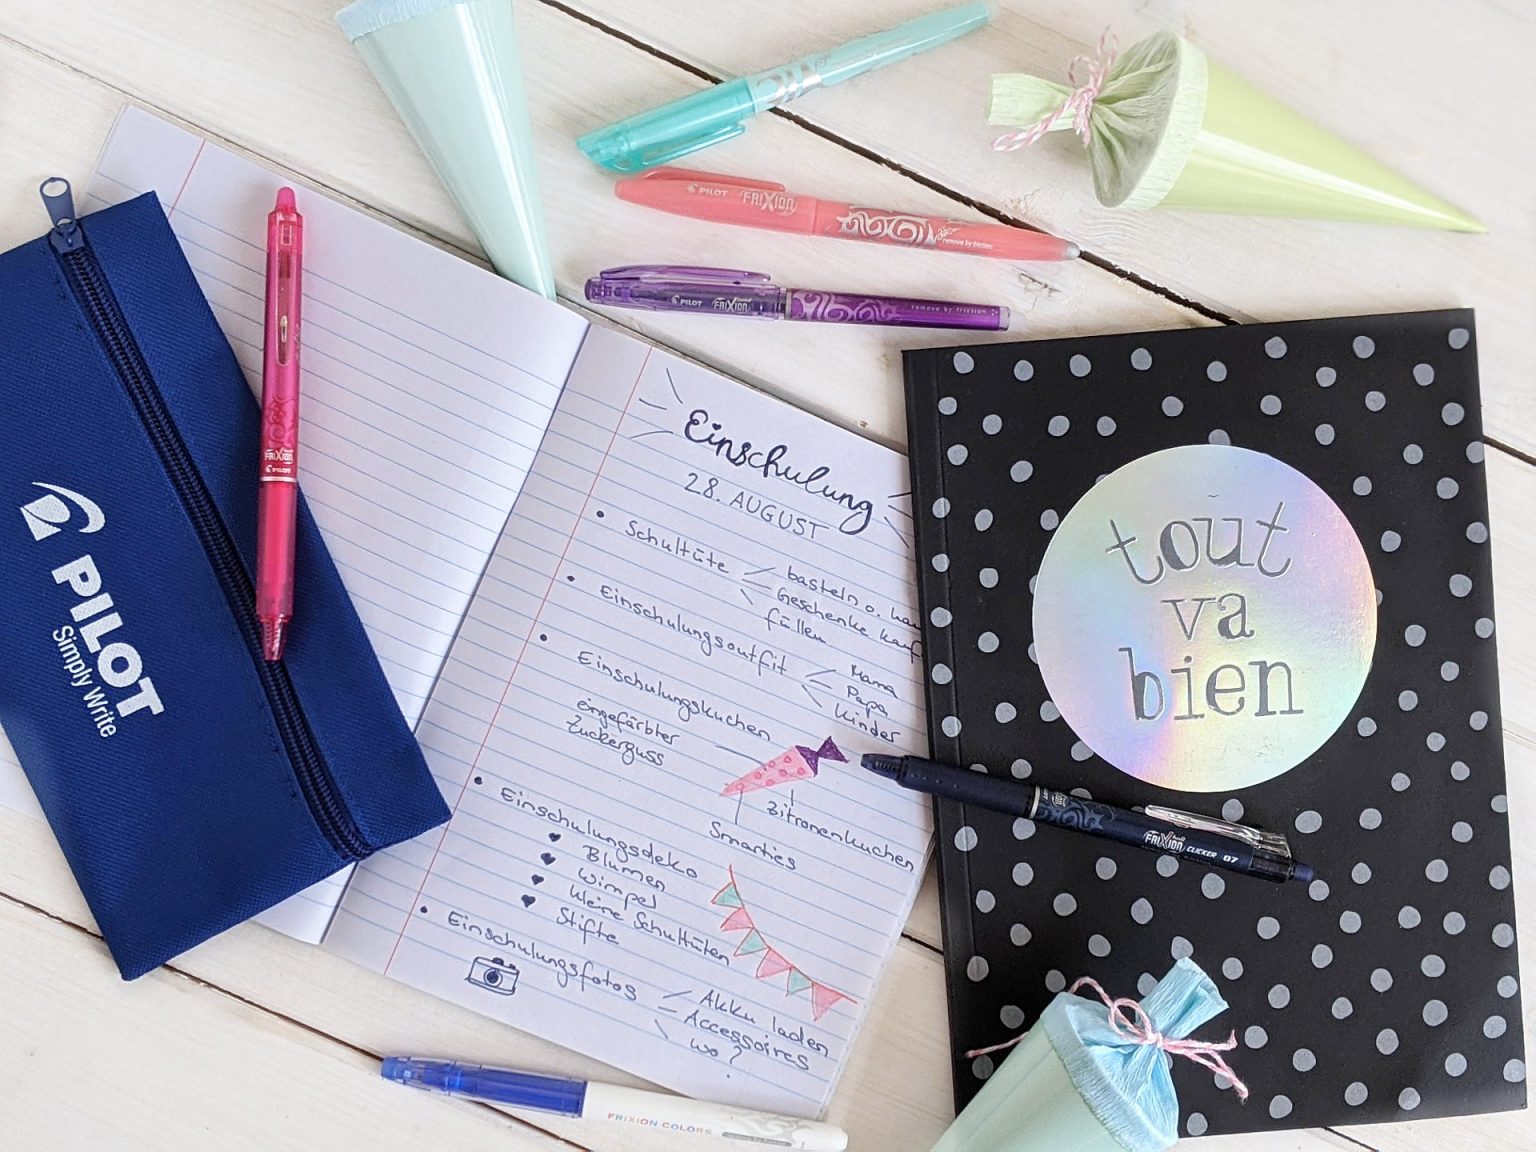 PILOT
FRIXION
remove by friction
PILOT FRIXION
remove by friction
FRIXION
PILOT
PILOT
Simply Write
Einschulung
28. AUGUST
• Schultüte
basteln o.
Geschenke
füllen
• Einschulungsoutfit
Mama
Papa
Kinder
• Einschulungskuchen
eingefärbter
Zuckerguss
Zitronenkuchen
Smarties
• Einschulungsdeko
♥ Blumen
♥ Wimpel
♥ kleine Schultüten
♥ Stifte
• Einschulungsfotos
Akku laden
Accessoires
wo?
tout
va
bien
FRIXION CLICKER 07
FRIXION COLORS